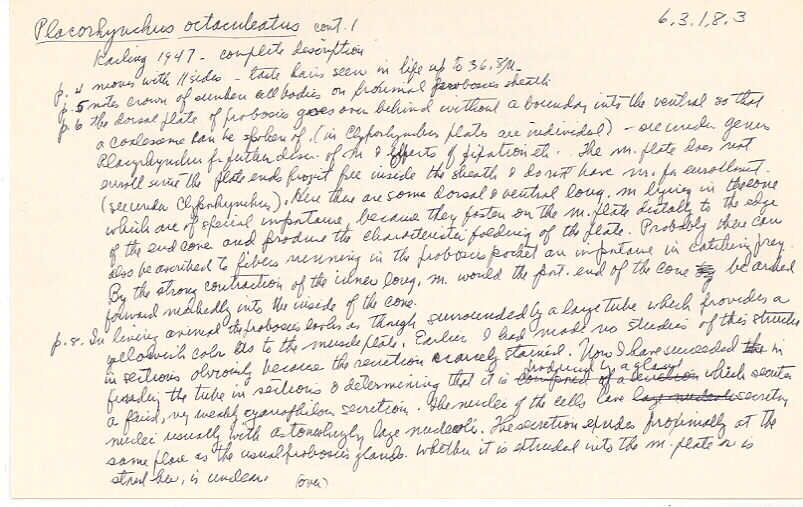 Placorhynchus octaculeatus cont. 1 6.3.1.8.3
Karling 1947 - complete description
p. 4 moves with 11 sides - taste hairs seen in life up to 36.8 µ.
p. 5 notes crown of sunken cell bodies on proximal proboscis sheath
p. 6 the dorsal plate of proboscis goes over behind without a boundary into the ventral so that
a coalescence can be spoken of. (in Clyporhynchus plates are individual) - see under genus
Placorhynchus for further disc. of m. & effects of fixation etc. The m. plate does not
enroll since the plate ends project free inside the sheath & do not have m. for enrollment.
(see under Clyporhynchus). Here there are some dorsal & ventral long. m. lying in the cone
which are of special importance, because they fasten on the m. plate distally to the edge
of the end cone and produce the characteristic folding of the plate. Probably there can
also be ascribed to fibers running in the proboscis pocket an importance in catching prey.
By the strong contraction of the inner long. m. would the post. end of the cone be arched
forward markedly into the inside of the cone.
p. 8. In living animal the proboscis looks as though surrounded by a large tube which provides a
yellowish color to the muscle plate. Earlier I had made no studies of this structure
in sections obviously because the secretion scarcely stained. Now I have succeeded in
finding the tube in sections & determining that it is composed of a secretion produced by a gland which secretes
a fluid, very weakly cyanophilous secretion. The nuclei of the cells have large nucleoli secretory
nuclei usually with astonishingly large nucleoli. The secretion exudes proximally at the
same place as the usual proboscis glands. Whether it is extruded into the m. plate or is
stored here, is unclear. (over)